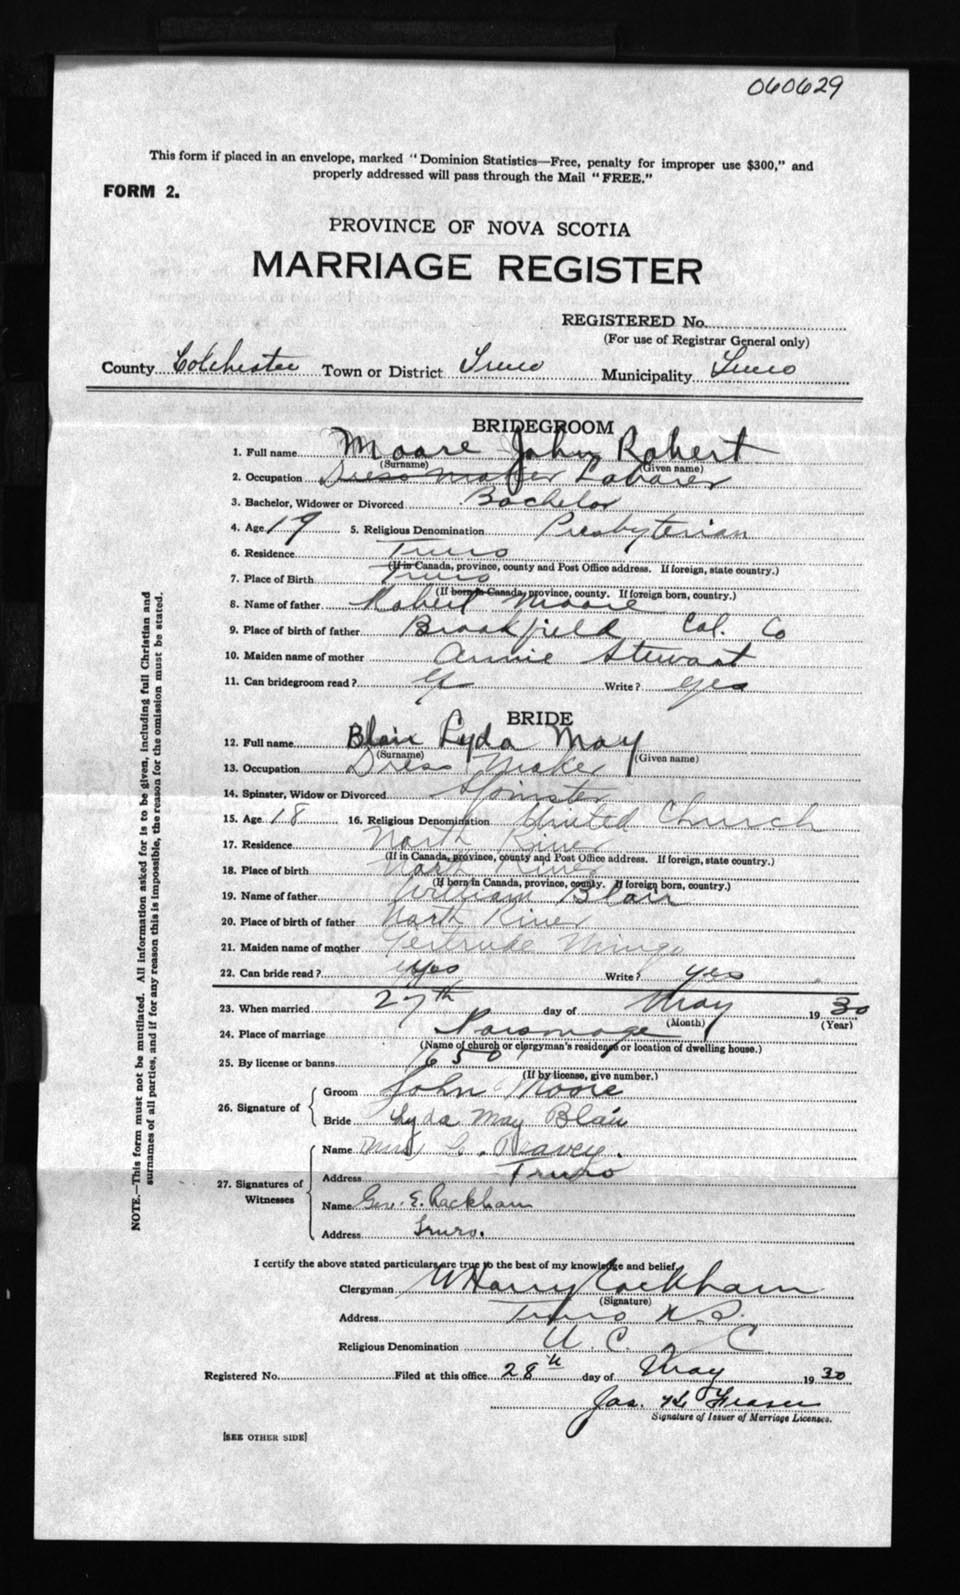 060629
This form if placed in an envelope, marked "Dominion Statistics—Free, penalty for improper use $300," and
properly addressed will pass through the Mail "FREE."
FORM 2.
PROVINCE OF NOVA SCOTIA
MARRIAGE REGISTER
REGISTERED No.
(For use of Registrar General only)
County Colchester Town or District Truro Municipality Truro
BRIDEGROOM
1. Full name Moore John Robert
(Surname) (Given name)
2. Occupation Dress Maker Labarer
3. Bachelor, Widower or Divorced Bachelor
4. Age 19 5. Religious Denomination Presbyterian
6. Residence Truro
(If in Canada, province, county and Post Office address. If foreign, state country.)
7. Place of Birth Truro
(If born in Canada, province, county. If foreign born, country.)
8. Name of father Robert Moore
9. Place of birth of father Brookfield Col. Co
10. Maiden name of mother Annie Stewart
11. Can bridegroom read? Write? yes
BRIDE
12. Full name Blair Lyda May
(Surname) (Given name)
13. Occupation Dress Maker
14. Spinster, Widow or Divorced Spinster
15. Age 18 16. Religious Denomination United Church
17. Residence North River
(If in Canada, province, county and Post Office address. If foreign, state country.)
18. Place of birth North River
(If born in Canada, province, county. If foreign born, country.)
19. Name of father William Blair
20. Place of birth of father North River
21. Maiden name of mother Gertrude Mingo
22. Can bride read? yes Write? yes
23. When married 27th day of May 1930
(Month) (Year)
24. Place of marriage Parsonage
(Name of church or clergyman's residence or location of dwelling house.)
25. By license or banns 650
(If by license, give number.)
26. Signature of
Groom John Moore
Bride Lyda May Blair
27. Signatures of Witnesses
Name
Address Truro
Name Geo. E. Rackham
Address Truro.
I certify the above stated particulars are true to the best of my knowledge and belief.
Clergyman W Harry Rackham
(Signature)
Address Truro N.S.
Religious Denomination U. C. C
Registered No. Filed at this office 28th day of May 1930
Jas. Fraser
Signature of Issuer of Marriage Licenses.
[SEE OTHER SIDE]
NOTE.—This form must not be mutilated. All information asked for is to be given, including full Christian and
surnames of all parties, and if for any reason this is impossible, the reason for the omission must be stated.